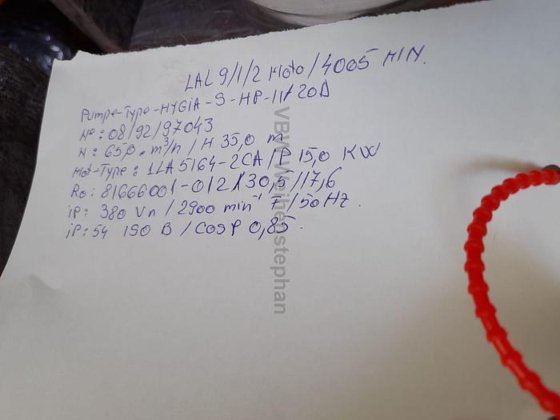 LAL 9/1/2 Moto / 4005 MIN.
Pumpe-Type-HYGIA-S-HP-11/20D
N°: 08/92/97043
N: 65,0 . m³/h / H 35,0 m
Mot-Type: 1LA5164-2CA / P 15,0 KW
Ro: 81666001-012 / 30,5 / 17,6
iP: 380 Vn / 2900 min⁻¹ F / 50 Hz.
iP: 54 ISO B / COSP 0,85.
VBW Weihenstephan